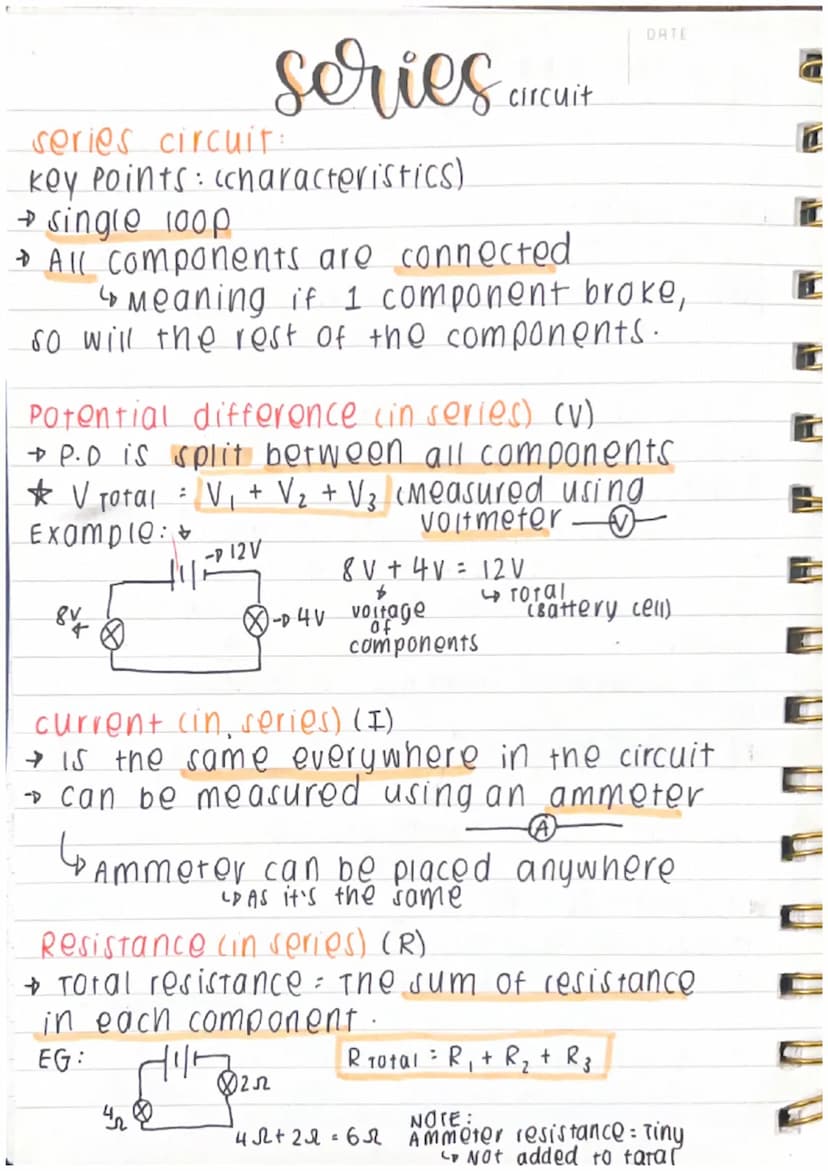 DATE
series circuit
series circuit:
Key points: (characteristics)
→ single loop
→ All components are connected
↳ Meaning if 1 component broke,
so will the rest of the components.
Potential difference (in series) (V)
→ P.D is split between all components
★ V Total = V₁ + V₂ + V₃ (Measured using
voltmeter V
Example: ↓
→ 12V
8V
→ 4V
8V + 4V = 12V
voltage
of
components
↳ Total
(Battery cell)
current (in series) (I)
→ is the same everywhere in the circuit
→ can be measured using an ammeter
A
↳ Ammeter can be placed anywhere
↳ As it's the same
Resistance (in series) (R)
→ Total resistance = The sum of resistance
in each component.
EG:
2Ω
4Ω
R Total = R₁ + R₂ + R₃
4Ω + 2Ω = 6Ω
NOTE:
Ammeter resistance = Tiny
↳ Not added to total